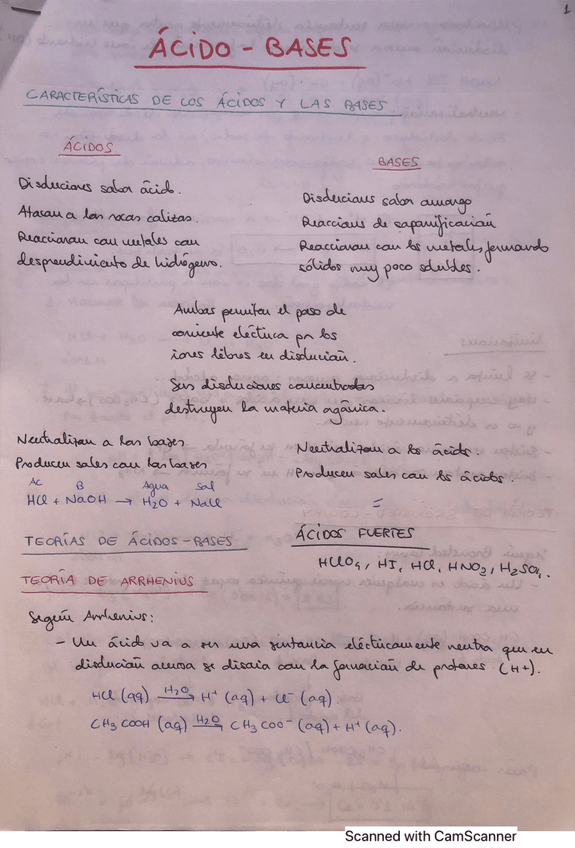 1
ÁCIDO - BASES
CARACTERÍSTICAS DE LOS ÁCIDOS Y LAS BASES
ÁCIDOS
Disoluciones sabor ácido.
Atacan a las rocas calizas.
Reaccionan con metales con
desprendimiento de hidrógeno.
BASES
Disoluciones sabor amargo
Reacciones de saponificación
Reaccionan con los metales, formando
sólidos muy poco solubles.
Ambas permiten el paso de
corriente eléctrica por los
iones libres en disolución.
Sus disoluciones concentradas
destruyen la materia orgánica.
Neutralizan a las bases
Producen sales con las bases
Ac B Agua Sal
HCl + NaOH → H2O + NaCl
Neutralizan a los ácidos.
Producen sales con los ácidos.
=
TEORÍAS DE ÁCIDOS-BASES
ÁCIDOS FUERTES
HClO4, HI, HCl, HNO2, H2SO4.
TEORÍA DE ARRHENIUS
Según Arrhenius:
- Un ácido va a ser una sustancia eléctricamente neutra que en
disolución acuosa se disocia con la formación de protones (H+).
HCl (aq) H2O→ H+ (aq) + Cl- (aq)
CH3COOH (aq) H2O→ CH3COO- (aq) + H+ (aq).
Scanned with CamScanner